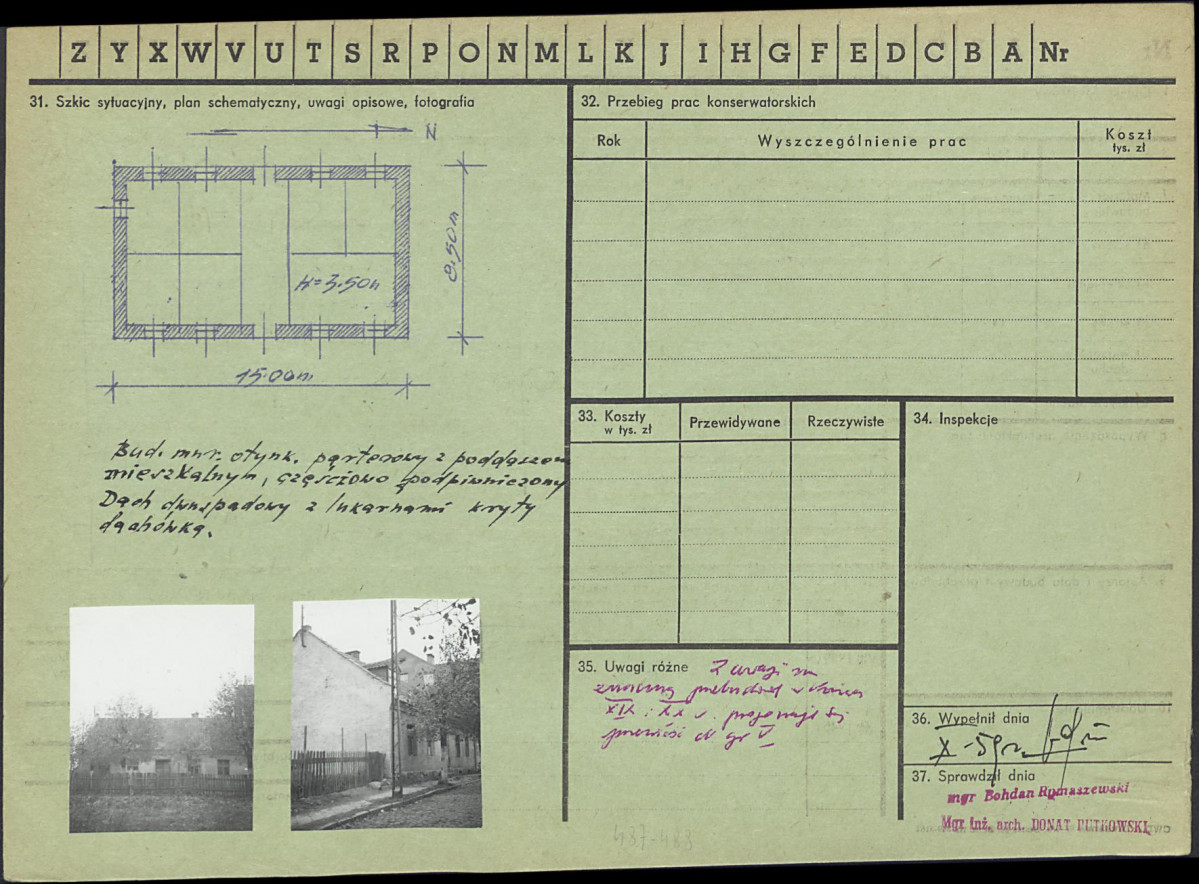 Z Y X W V U T S R P O N M L K J I H G F E D C B A Nr
31. Szkic sytuacyjny, plan schematyczny, uwagi opisowe, fotografia
N
8.50m
H=3.50m
15.00m
Bud. mur. otynk. parterowy z poddaszem
mieszkalnym, częściowo podpiwniczony
Dach dwuspadowy z lukarnami kryty
dachówką.
32. Przebieg prac konserwatorskich
Rok
Wyszczególnienie prac
Koszt
tys. zł
33. Koszty
w tys. zł
Przewidywane
Rzeczywiste
34. Inspekcje
35. Uwagi różne
Z uwagi na
znaczną przebudowę w końcu
XIX i XX w. proponuje się
przenieść do gr V
36. Wypełnił dnia
X-59r
37. Sprawdził dnia
mgr Bohdan Rymaszewski
Mgr inż. arch. DONAT RUTKOWSKI
487-488